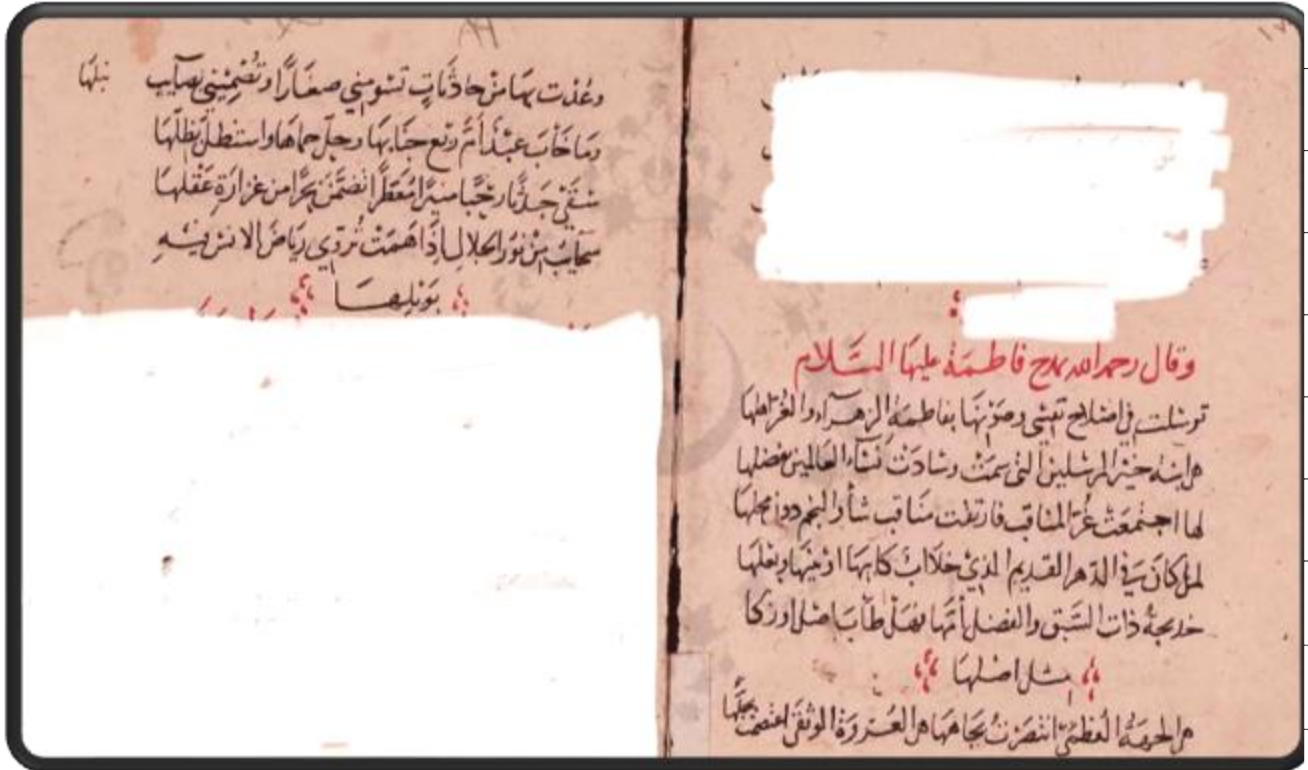 وقال رحمه الله يمدح فاطمة عليها السلام
توسلت في اصلاح نفسي وصونها بفاطمة الزهراء والغر اهلها
هي ابنة خير المرسلين التي سمت وسادت نساء العالمين بفضلها
لها اجتمعت غر المناقب فارتقت مناقب شأو النجم دون محلها
لمن كان في الدهر القديم الذي خلا اب كابيها او نبيها وبعلها
خديجة ذات السبق والفضل أمها فهل طاب اصل او زكا
مثل اصلها
هي الحرمة العظمى انتصرت بجاهها هي العروة الوثقى اعتصمت بحبلها
وعذت بها من حادثات تسومني صغارا وتصميني بصايب نبلها
وما خاب عبد أم ربع جنابها وحل حماها واستظل بظلها
سقى جدثا رحبا منيرا معطرا تضمن بحرا من غزارة عقلها
سحايب من نور الجلال اذا همت تروي رياض الانس فيه
بوبلها